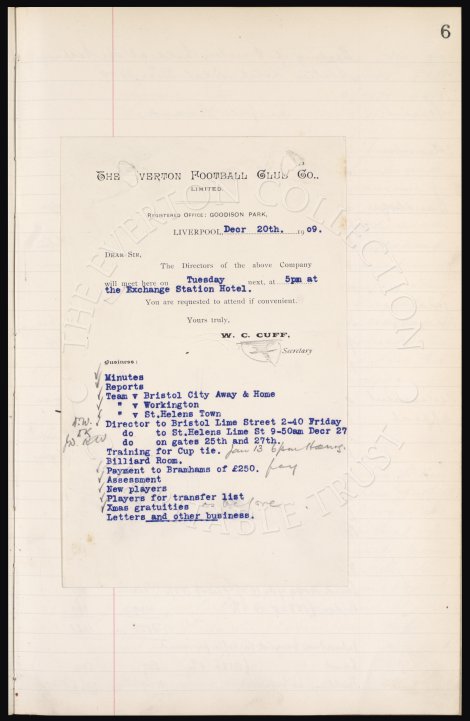 6
THE EVERTON FOOTBALL CLUB CO.,
LIMITED.
REGISTERED OFFICE: GOODISON PARK,
LIVERPOOL, Decr 20th. 1909.
DEAR SIR,
The Directors of the above Company
will meet here on Tuesday next, at 5pm at
the Exchange Station Hotel.
You are requested to attend if convenient.
Yours truly,
W. C. CUFF,
Secretary
Business:
Minutes
Reports
Team v Bristol City Away & Home
" v Workington
" v St.Helens Town
Director to Bristol Lime Street 2-40 Friday
do to St.Helens Lime St 9-50am Decr 27
do on gates 25th and 27th.
Training for Cup tie. Jan 13 6pm
Billiard Room.
Payment to Bramhams of £250. pay
Assessment
New players
Players for transfer list
Xmas gratuities as before
Letters and other business.
THE EVERTON COLLECTION
TABLE TRUST